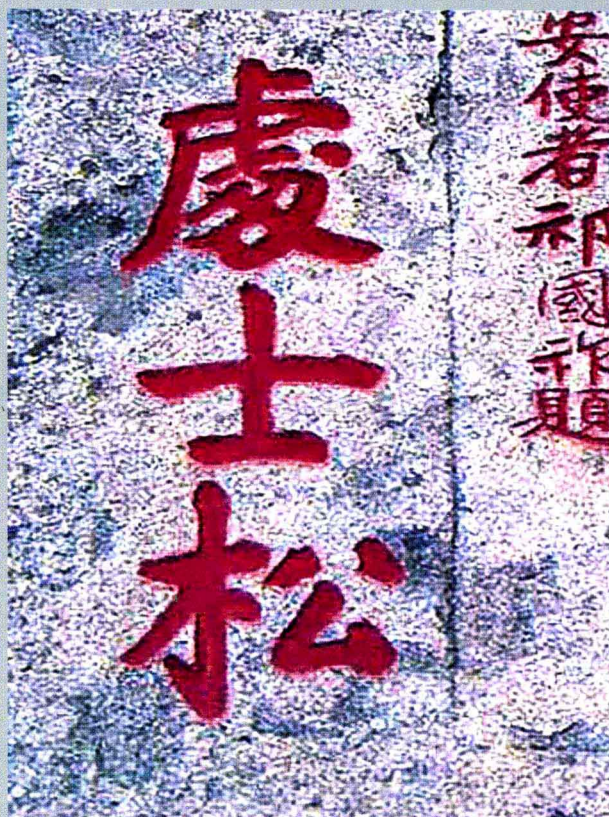 安使者祁國祚題
處士松